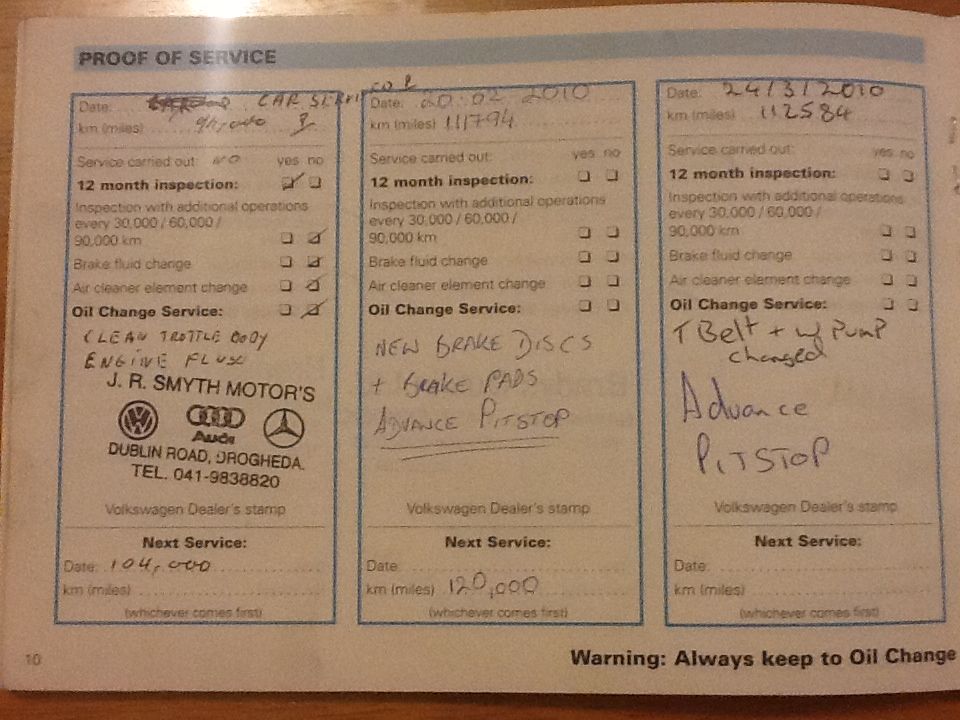 PROOF OF SERVICE
Date: CAR SERVICE
km (miles)
Service carried out: NO yes no
12 month inspection:
Inspection with additional operations
every 30,000 / 60,000 /
90,000 km
Brake fluid change
Air cleaner element change
Oil Change Service:
CLEAN TROTTLE BODY
ENGINE FLUSH
J. R. SMYTH MOTOR'S
Audi
DUBLIN ROAD, DROGHEDA.
TEL. 041-9838820
Volkswagen Dealer's stamp
Next Service:
Date: 104,000
km (miles)
(whichever comes first)
Date: 20.02 2010
km (miles) 111794
Service carried out: yes no
12 month inspection:
Inspection with additional operations
every 30,000 / 60,000 /
90,000 km
Brake fluid change
Air cleaner element change
Oil Change Service:
NEW BRAKE DISCS
+ BRAKE PADS
ADVANCE PITSTOP
Volkswagen Dealer's stamp
Next Service:
Date
km (miles) 120,000
(whichever comes first)
Date: 24/3/2010
km (miles) 112584
Service carried out: yes no
12 month inspection:
Inspection with additional operations
every 30,000 / 60,000 /
90,000 km
Brake fluid change
Air cleaner element change
Oil Change Service:
T Belt + w/ Pump
changed
Advance
PITSTOP
Volkswagen Dealer's stamp
Next Service:
Date
km (miles)
(whichever comes first)
10
Warning: Always keep to Oil Change